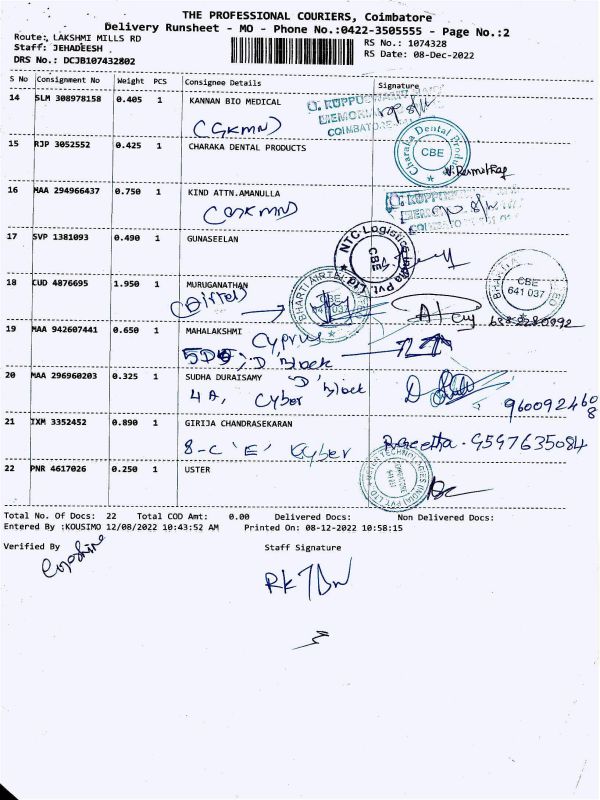 THE PROFESSIONAL COURIERS, Coimbatore
Delivery Runsheet - MO - Phone No.:0422-3505555 - Page No.:2
Route: LAKSHMI MILLS RD
Staff: JEHADEESH
DRS No.: DCJB107432802
RS No.: 1074328
RS Date: 08-Dec-2022
S No Consignment No Weight PCS Consignee Details Signature
14 SLM 308978158 0.405 1 KANNAN BIO MEDICAL
(GKMH)
COIMBATORE
15 RJP 3052552 0.425 1 CHARAKA DENTAL PRODUCTS
Charaka Dental Products
CBE
16 MAA 294966437 0.750 1 KIND ATTN.AMANULLA
(GKMH)
17 SVP 1381093 0.490 1 GUNASEELAN
NTC Logistics India Pvt. Ltd.
CBE
18 CUD 4876695 1.950 1 MURUGANATHAN
(Airtel)
BHARTI AIRTEL
CBE
641 037
BHARTI
CBE
641 037
19 MAA 942607441 0.650 1 MAHALAKSHMI
Cyprus
'D' Block
20 MAA 296960203 0.325 1 SUDHA DURAISAMY
'D' Block
4 A, Cyber
21 IXM 3352452 0.890 1 GIRIJA CHANDRASEKARAN
8-C 'E' Cyber
9597635084
22 PNR 4617026 0.250 1 USTER
TECHNOLOGIES (INDIA) PVT LTD
Total No. Of Docs: 22 Total COD Amt: 0.00 Delivered Docs: Non Delivered Docs:
Entered By :KOUSIMO 12/08/2022 10:43:52 AM Printed On: 08-12-2022 10:58:15
Verified By Staff Signature